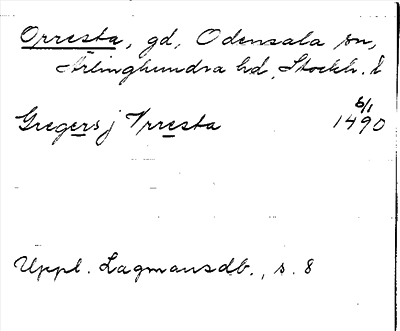 Orresta, gd, Odensala sn,
Ärlinghundra hd, Stockh. l
6/1
Gregers j Yrresta 1490
Uppl. Lagmansdb., s. 8